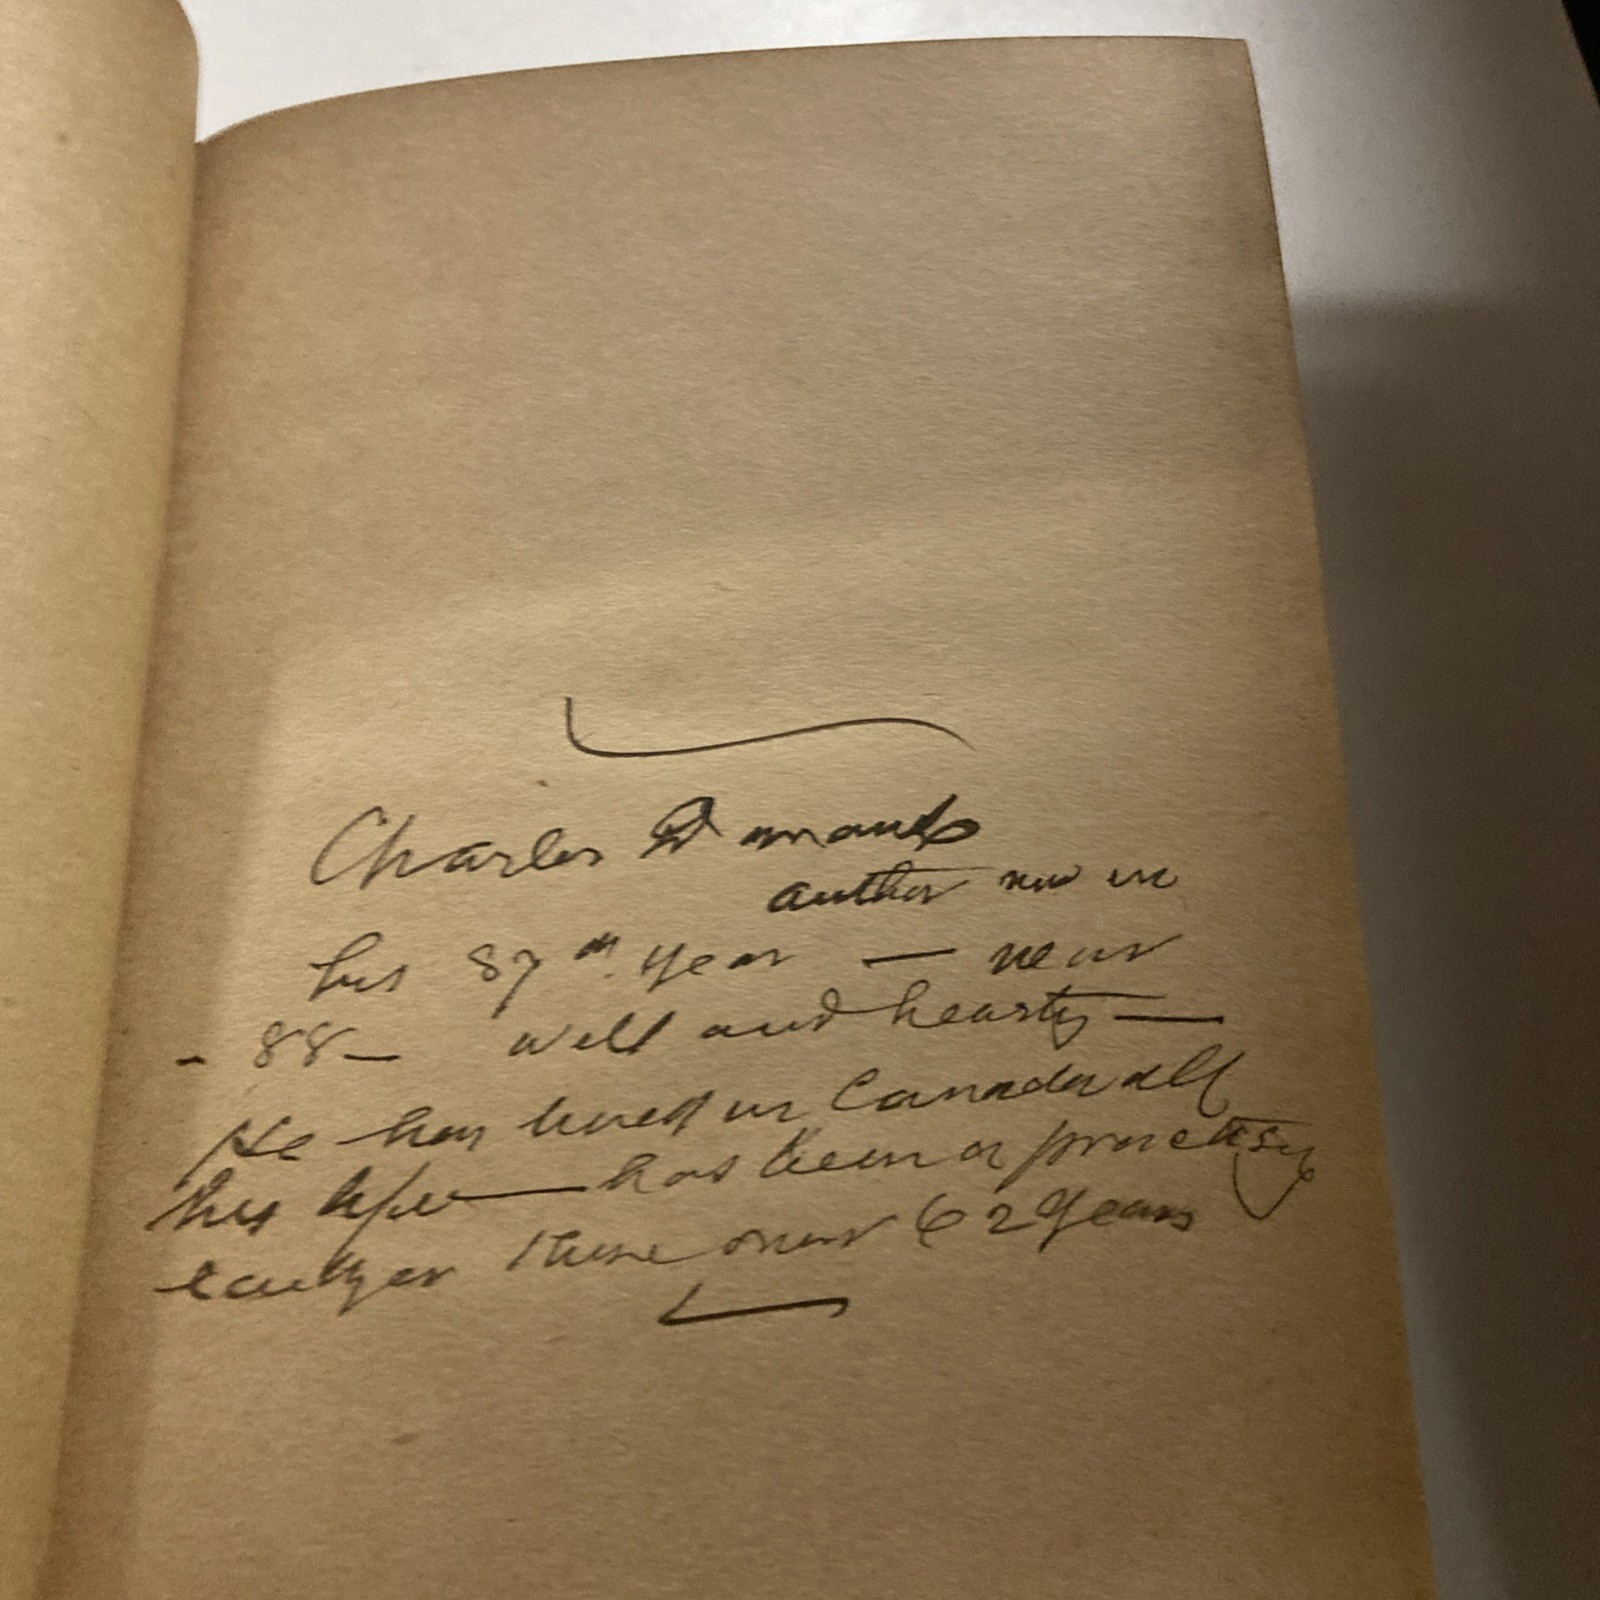 Charles Durand
author now in
his 87th year — near
- 88 — well and hearty —
He has lived in Canada all
his life — has been a practising
lawyer there over 62 years